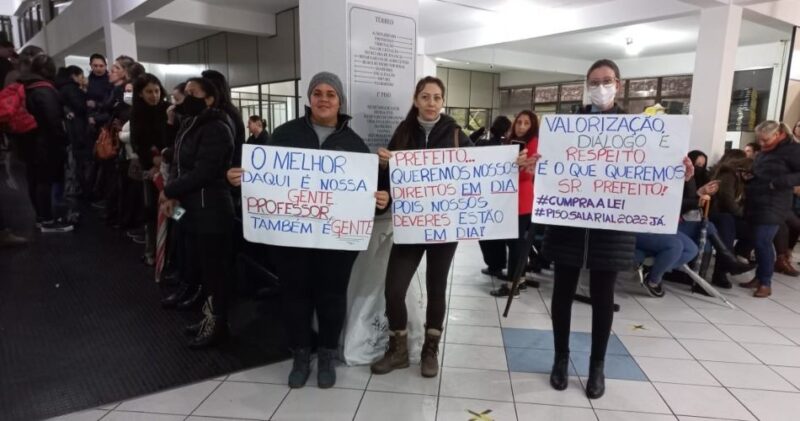 TÉRREO
O MELHOR
DAQUI É NOSSA
GENTE.
PROFESSOR
TAMBÉM É GENTE
PREFEITO...
QUEREMOS NOSSOS
DIREITOS EM DIA,
POIS NOSSOS
DEVERES ESTÃO
EM DIA!
VALORIZAÇÃO,
DIÁLOGO E
RESPEITO
É O QUE QUEREMOS
SR PREFEITO!
#CUMPRA A LEI
#PISO SALARIAL 2022 JÁ